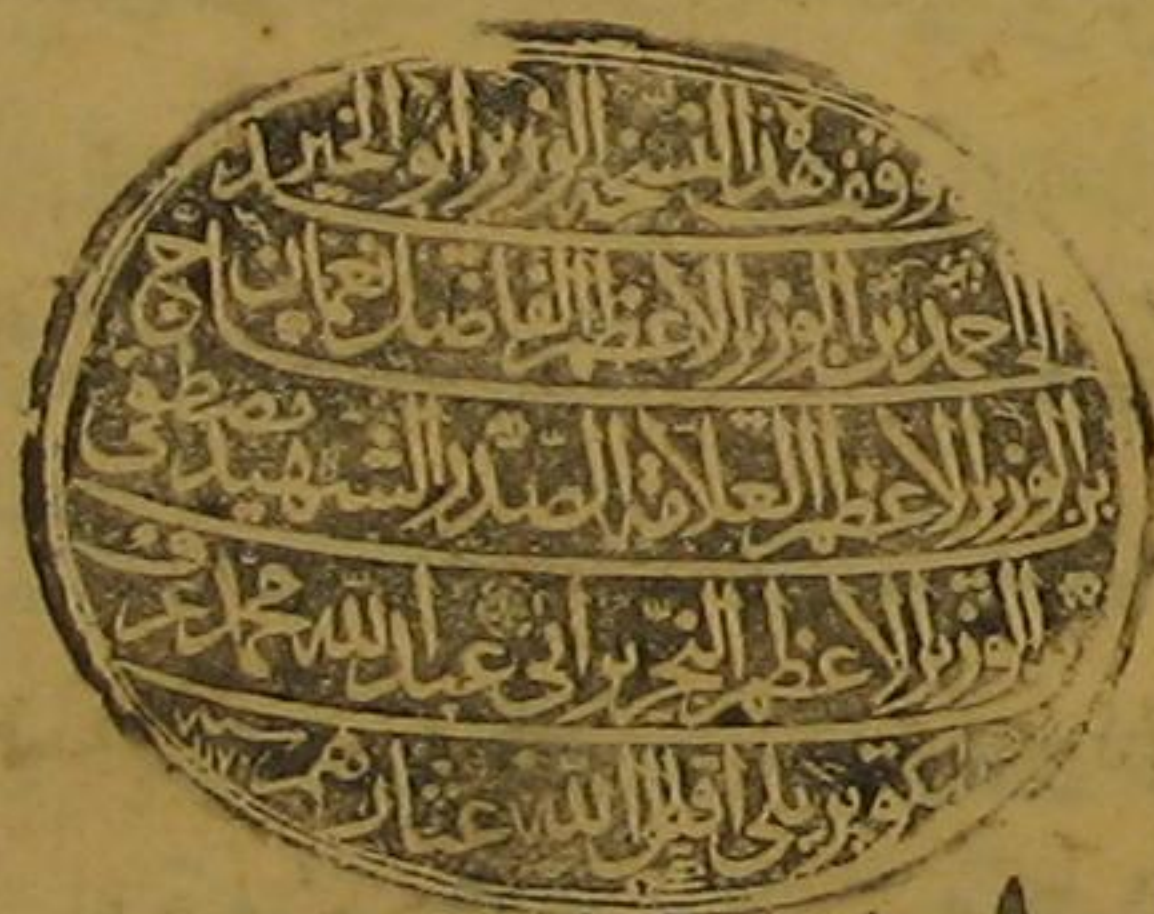 وقف هذا النسخة الوزير ابو الخير
الحاج احمد بن الوزير الاعظم الفاضل نعمان
بن الوزير الاعظم العلامة الصدر الشهيد مصطفى
بن الوزير الاعظم النحرير ابى عبد الله محمد عرف
بكوپريلى اقال الله عثارهم سنه